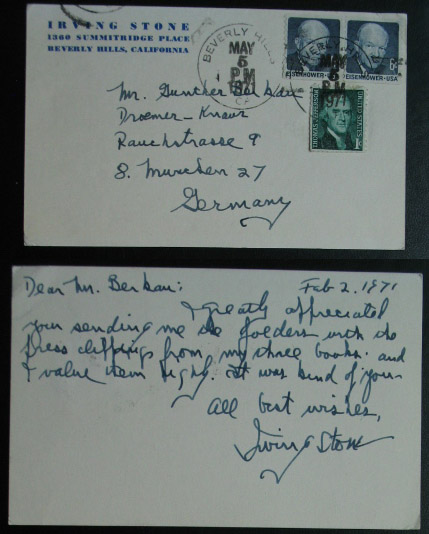 IRVING STONE
1360 SUMMITRIDGE PLACE
BEVERLY HILLS, CALIFORNIA
BEVERLY HILLS
MAY
5
PM
1971
CA
BEVERLY HILLS
MAY
5
PM
1971
EISENHOWER·USA
EISENHOWER·USA
THOMAS JEFFERSON
UNITED STATES
1c
Mr. Gunther Berkau
Droemer-Knaur
Rauchstrasse 9
8. Munchen 27
Germany
Dear Mr. Berkau: Feb 2. 1971
I greatly appreciated
your sending me the folders with the
press clippings from my three books. and
I value them highly. It was kind of you.
All best wishes,
Irving Stone